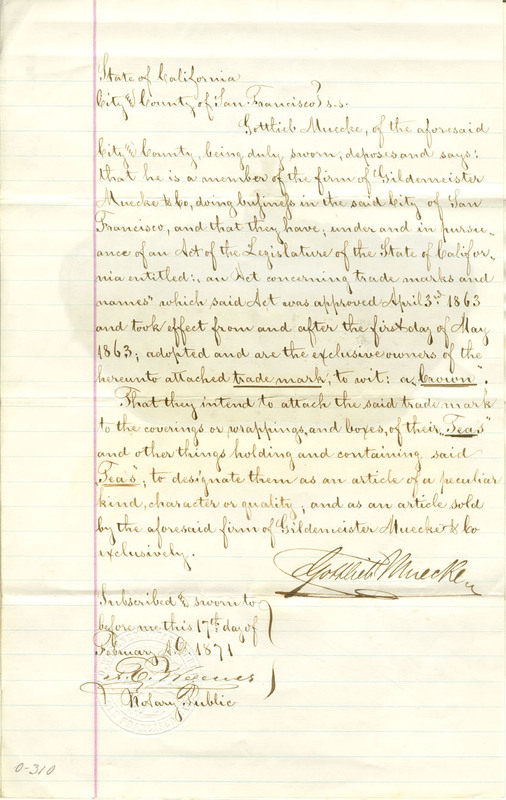 State of California
City & County of San Francisco } s.s.
Gottlieb Muecke, of the aforesaid
City & County, being duly sworn, deposes and says:
that he is a member of the firm of Gildemeister
Muecke & Co, doing business in the said City of San
Francisco, and that they have, under and in pursu-
ance of an Act of the Legislature of the State of Califor-
nia entitled: „an Act concerning trade marks and
names" which said Act was approved April 3rd 1863
and took effect from and after the first day of May
1863; adopted and are the exclusive owners of the
hereunto attached trade mark, to wit: a „Crown".
That they intend to attach the said trade mark
to the coverings or wrappings, and boxes, of their „Teas"
and other things holding and containing said
„Teas", to designate them as an article of a peculiar
kind, character or quality, and as an article sold
by the aforesaid firm of Gildemeister Muecke & Co
exclusively.
Gottlieb Muecke
Subscribed & sworn to
before me this 17th day of
February A.D. 1871
Notary Public
0-310